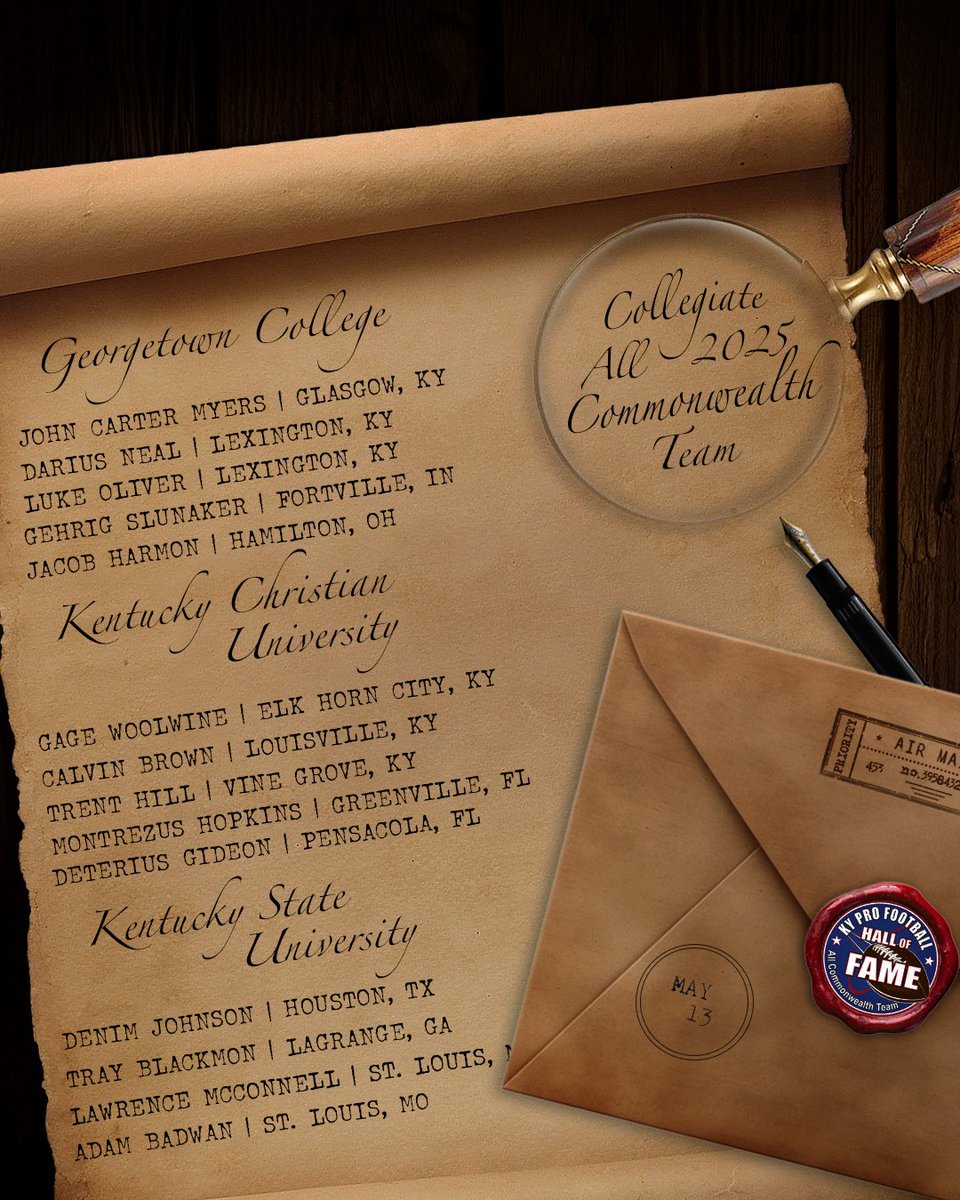 Georgetown College
JOHN CARTER MYERS | GLASGOW, KY
DARIUS NEAL | LEXINGTON, KY
LUKE OLIVER | LEXINGTON, KY
GEHRIG SLUNAKER | FORTVILLE, IN
JACOB HARMON | HAMILTON, OH
Kentucky Christian
University
GAGE WOOLWINE | ELK HORN CITY, KY
CALVIN BROWN | LOUISVILLE, KY
TRENT HILL | VINE GROVE, KY
MONTREZUS HOPKINS | GREENVILLE, FL
DETERIUS GIDEON | PENSACOLA, FL
Kentucky State
University
DENIM JOHNSON | HOUSTON, TX
TRAY BLACKMON | LAGRANGE, GA
LAWRENCE MCCONNELL | ST. LOUIS,
ADAM BADWAN | ST. LOUIS, MO
Collegiate
All 2025
Commonwealth
Team
PRIORITY
AIR MA
453 no.3958432
KY PRO FOOTBALL
HALL OF
FAME
All Commonwealth Team
MAY
13